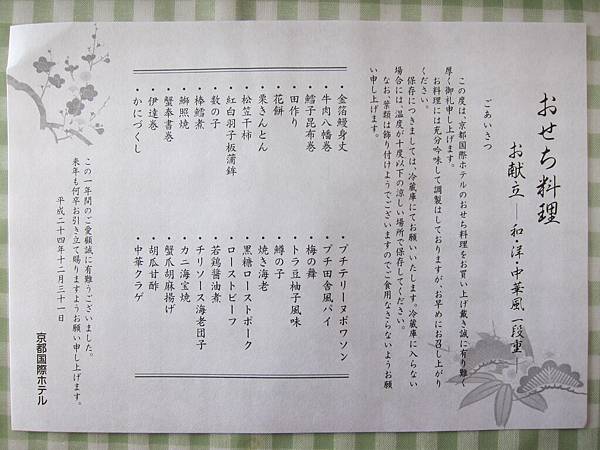 おせち料理
お献立―和・洋・中華風一段重―
ごあいさつ
この度は、京都国際ホテルのおせち料理をお買い上げ戴き誠に有り難く
厚く御礼申し上げます。
お料理には充分吟味して調製はしておりますが、お早めにお召し上がり
ください。
保存につきましては、冷蔵庫にてお願いいたします。冷蔵庫に入らない
場合には、温度が十度以下の涼しい場所で保存してください。
なお、葉類は飾り付けようでございますのでご食用なさらないようお願
い申し上げます。
・金箔鰻身丈
・牛肉八幡巻
・鱈子昆布巻
・田作り
・花餅
・栗きんとん
・松笠干柿
・紅白羽子板蒲鉾
・数の子
・棒鱈煮
・鰤照焼
・蟹奉書巻
・伊達巻
・かにづくし
・プチテリーヌポワソン
・プチ田舎風パイ
・梅の舞
・トラ豆柚子風味
・鱒の子
・焼き海老
・黒糖ローストポーク
・ローストビーフ
・若鶏醤油煮
・チリソース海老団子
・カニ海宝焼
・蟹爪胡麻揚げ
・胡瓜甘酢
・中華クラゲ
この一年間のご愛顧誠に有難うございました。
来年も何卒お引き立て賜りますようお願い申し上げます。
平成二十四年十二月三十一日
京都国際ホテル